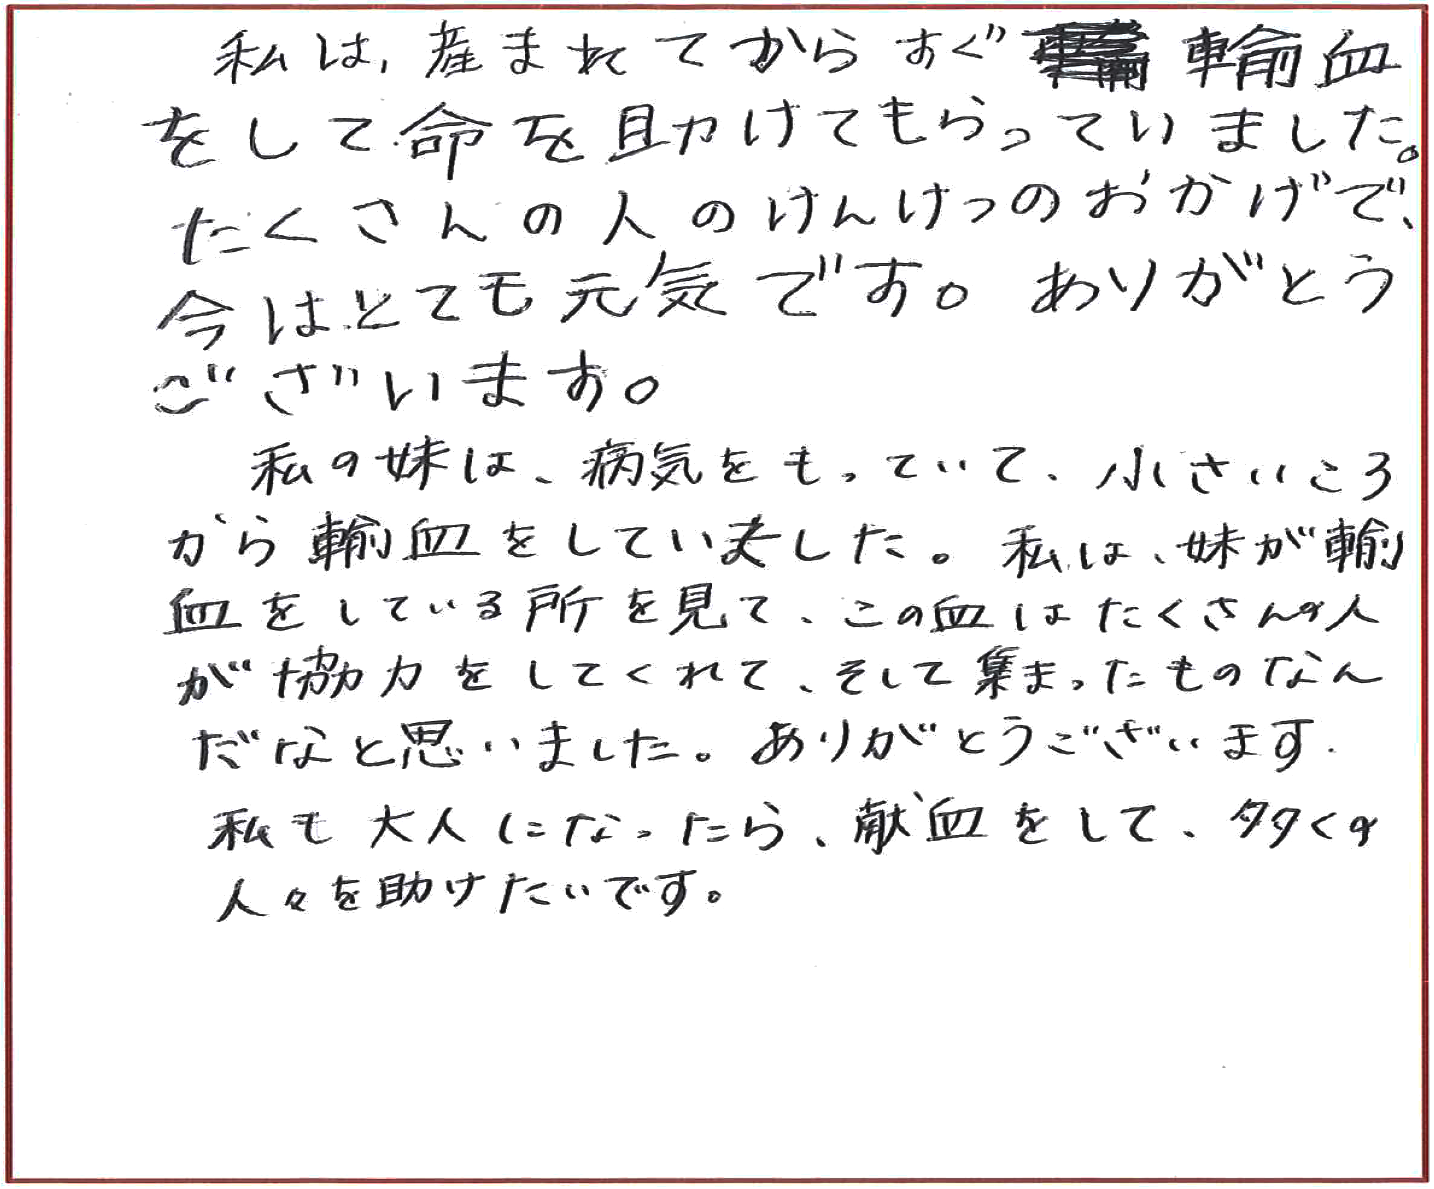 私は、産まれてからすぐ輸血
をして命を助けてもらっていました。
たくさんの人のけんけつのおかげで、
今はとても元気です。ありがとう
ございます。
私の妹は、病気をもっていて、小さいころ
から輸血をしていました。私は、妹が輸
血をしている所を見て、この血はたくさんの人
が協力をしてくれて、そして集まったものなん
だなと思いました。ありがとうございます.
私も大人になったら、献血をして、多くの
人々を助けたいです。